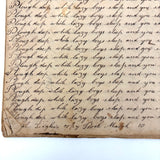 Plough deep while lazy boys sleep and you
Plough deep while lazy boys sleep and you
Plough deep while lazy boys sleep and you
Plough deep while lazy boys sleep and you
Plough deep while lazy boys sleep and you
Plough deep while lazy boys sleep and you
Plough deep while lazy boys sleep and you
Plough deep while lazy boys sleep and you
Plough deep while lazy boys sleep and you
Plough deep while lazy boys sleep and you